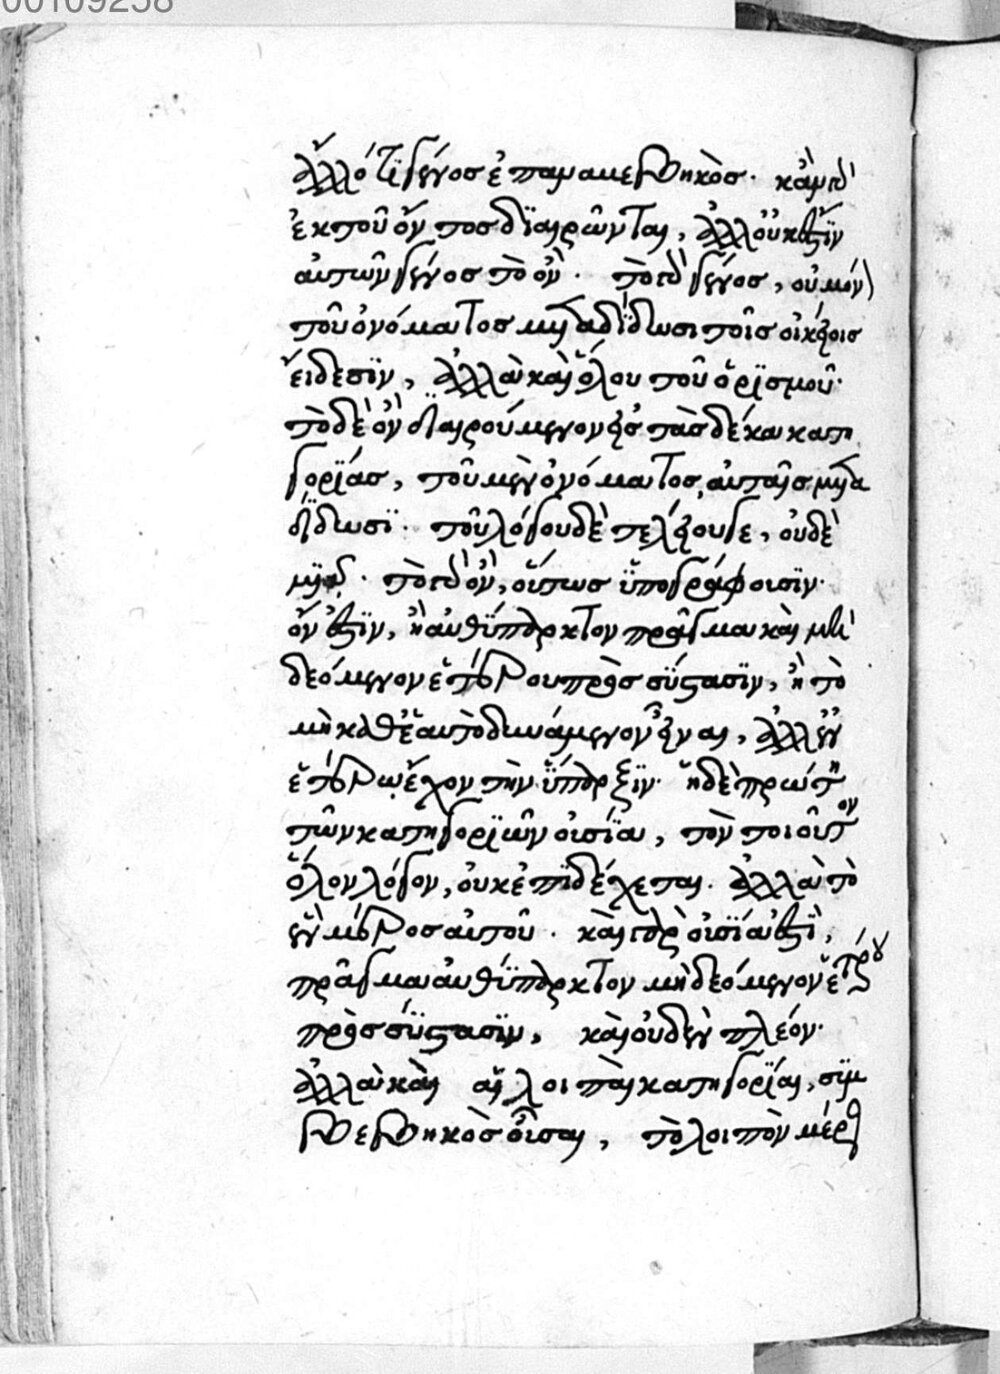 00109258
ἄλλό τϊ γένος ἐπαναμεβηκὸς. κἀν γὰρ
ἐκ τοῦ ὄντος διαιρῶνται, ἀλλ' οὐκ ἔστϊν
αὐτῶν γένος τὸ ὂν. τὸ γὰρ γένος, οὐ μόνον
τοῦ ὀνόματος μεταδίδωσι τοῖς οἰκείοις
εἴδεσϊν, ἀλλὰ καὶ ὅλου τοῦ ὁρϊσμοῦ.
τὸ δὲ ὂν διαιρούμενον εἰς τὰς δέκα κατη
γορϊάς, τοῦ μὲν ὀνόματος αὐταῖς μετα
δίδωσϊ. τοῦ λόγου δὲ τελείου γε, οὐδὲ
μϊᾷ. τὸ γὰρ ὂν, οὕτως ὑπογράφουσϊν.
ὄν ἐστϊν, ἢ αὐθύπαρκτον πρᾶγμα καὶ μὴ
δεόμενον ἑτέρου πρὸς σύστασϊν, ἢ τὸ
μὴ καθ' ἑαυτὸ δυνάμενον εἶναι, ἀλλ' ἐν
ἑτέρῳ ἔχον τὴν ὕπαρξϊν. ἡ δὲ πρώτη
τῶν κατηγορϊῶν οὐσϊα, τὸν τοιοῦτον
ὅλον λόγον, οὐκ ἐπϊδέχεται. ἀλλὰ τὸ
ἓν μέρος αὐτοῦ. καὶ γὰρ οὐσία ἐστϊ,
πρᾶγμα αὐθύπαρκτον μὴ δεόμενον ἑτέρου
πρὸς σύστασϊν, καὶ οὐδὲν πλέον.
ἀλλὰ καὶ αἱ λοιπαὶ κατηγορϊαι, συμ
βεβηκὸς οὖσαι, τὸ λοιπὸν μέρος